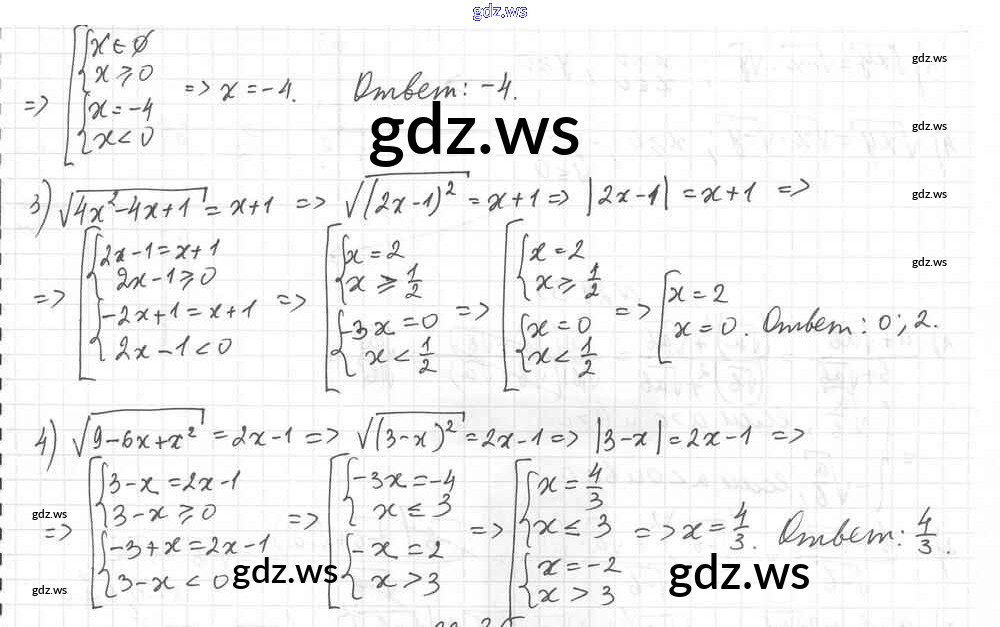 gdz.ws
=> [{x ∈ ∅ x ≥ 0 {x = -4 x < 0 => x = -4. Ответ: -4.
gdz.ws
gdz.ws
gdz.ws
3) √(4x²-4x+1) = x+1 => √((2x-1)²) = x+1 => |2x-1| = x+1 =>
gdz.ws
gdz.ws
=> [{2x-1=x+1 2x-1≥0 {-2x+1=x+1 2x-1<0 => [{x=2 x≥1/2 {-3x=0 x<1/2 => [{x=2 x≥1/2 {x=0 x<1/2 => [x=2 x=0. Ответ: 0; 2.
4) √(9-6x+x²) = 2x-1 => √((3-x)²) = 2x-1 => |3-x| = 2x-1 =>
=> [{3-x=2x-1 3-x≥0 {-3+x=2x-1 3-x<0 => [{-3x=-4 x≤3 {-x=2 x>3 => [{x=4/3 x≤3 {x=-2 x>3 => x=4/3. Ответ: 4/3.
gdz.ws
gdz.ws
gdz.ws
gdz.ws